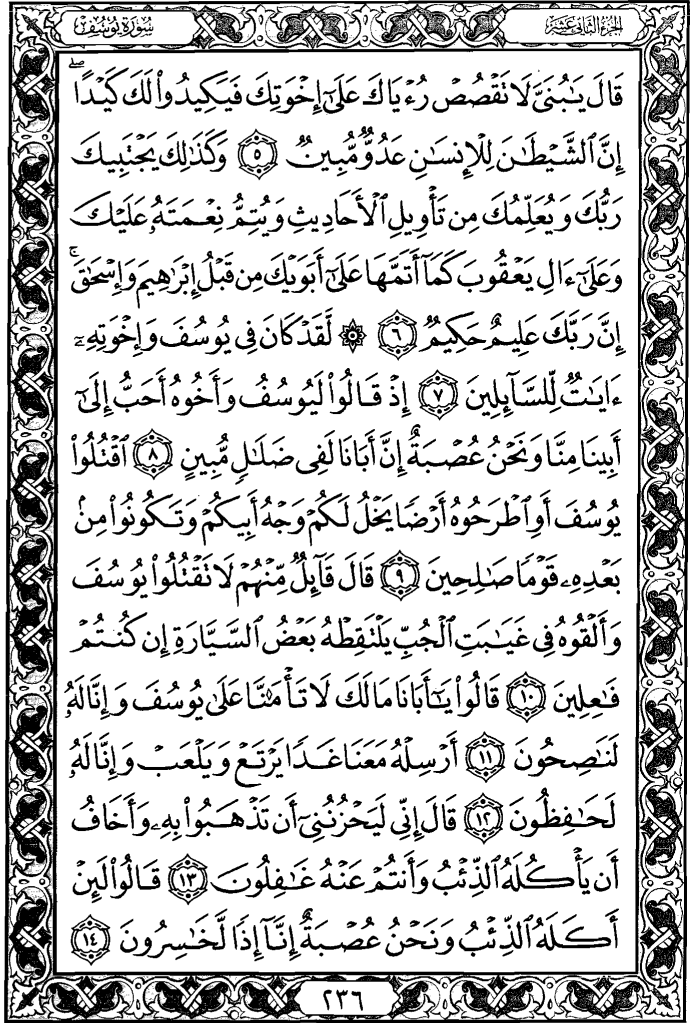 الجزء الثاني عشر
سورة يوسف
قَالَ يَٰبُنَىَّ لَا تَقۡصُصۡ رُءۡيَاكَ عَلَىٰٓ إِخۡوَتِكَ فَيَكِيدُواْ لَكَ كَيۡدًاۖ
إِنَّ ٱلشَّيۡطَٰنَ لِلۡإِنسَٰنِ عَدُوٌّ مُّبِينٌ ٥ وَكَذَٰلِكَ يَجۡتَبِيكَ
رَبُّكَ وَيُعَلِّمُكَ مِن تَأۡوِيلِ ٱلۡأَحَادِيثِ وَيُتِمُّ نِعۡمَتَهُۥ عَلَيۡكَ
وَعَلَىٰٓ ءَالِ يَعۡقُوبَ كَمَآ أَتَمَّهَا عَلَىٰٓ أَبَوَيۡكَ مِن قَبۡلُ إِبۡرَٰهِيمَ وَإِسۡحَٰقَۚ
إِنَّ رَبَّكَ عَلِيمٌ حَكِيمٌ ٦ ۞ لَّقَدۡ كَانَ فِى يُوسُفَ وَإِخۡوَتِهِۦٓ
ءَايَٰتٌ لِّلسَّآئِلِينَ ٧ إِذۡ قَالُواْ لَيُوسُفُ وَأَخُوهُ أَحَبُّ إِلَىٰٓ
أَبِينَا مِنَّا وَنَحۡنُ عُصۡبَةٌ إِنَّ أَبَانَا لَفِى ضَلَٰلٍ مُّبِينٍ ٨ ٱقۡتُلُواْ
يُوسُفَ أَوِ ٱطۡرَحُوهُ أَرۡضًا يَخۡلُ لَكُمۡ وَجۡهُ أَبِيكُمۡ وَتَكُونُواْ مِنۢ
بَعۡدِهِۦ قَوۡمًا صَٰلِحِينَ ٩ قَالَ قَآئِلٌ مِّنۡهُمۡ لَا تَقۡتُلُواْ يُوسُفَ
وَأَلۡقُوهُ فِى غَيَٰبَتِ ٱلۡجُبِّ يَلۡتَقِطۡهُ بَعۡضُ ٱلسَّيَّارَةِ إِن كُنتُمۡ
فَٰعِلِينَ ١٠ قَالُواْ يَٰٓأَبَانَا مَالَكَ لَا تَأۡمَ۬نَّا عَلَىٰ يُوسُفَ وَإِنَّا لَهُۥ
لَنَٰصِحُونَ ١١ أَرۡسِلۡهُ مَعَنَا غَدًا يَرۡتَعۡ وَيَلۡعَبۡ وَإِنَّا لَهُۥ
لَحَٰفِظُونَ ١٢ قَالَ إِنِّى لَيَحۡزُنُنِىٓ أَن تَذۡهَبُواْ بِهِۦ وَأَخَافُ
أَن يَأۡكُلَهُ ٱلذِّئۡبُ وَأَنتُمۡ عَنۡهُ غَٰفِلُونَ ١٣ قَالُواْ لَئِنۡ
أَكَلَهُ ٱلذِّئۡبُ وَنَحۡنُ عُصۡبَةٌ إِنَّآ إِذًا لَّخَٰسِرُونَ ١٤
٢٣٦